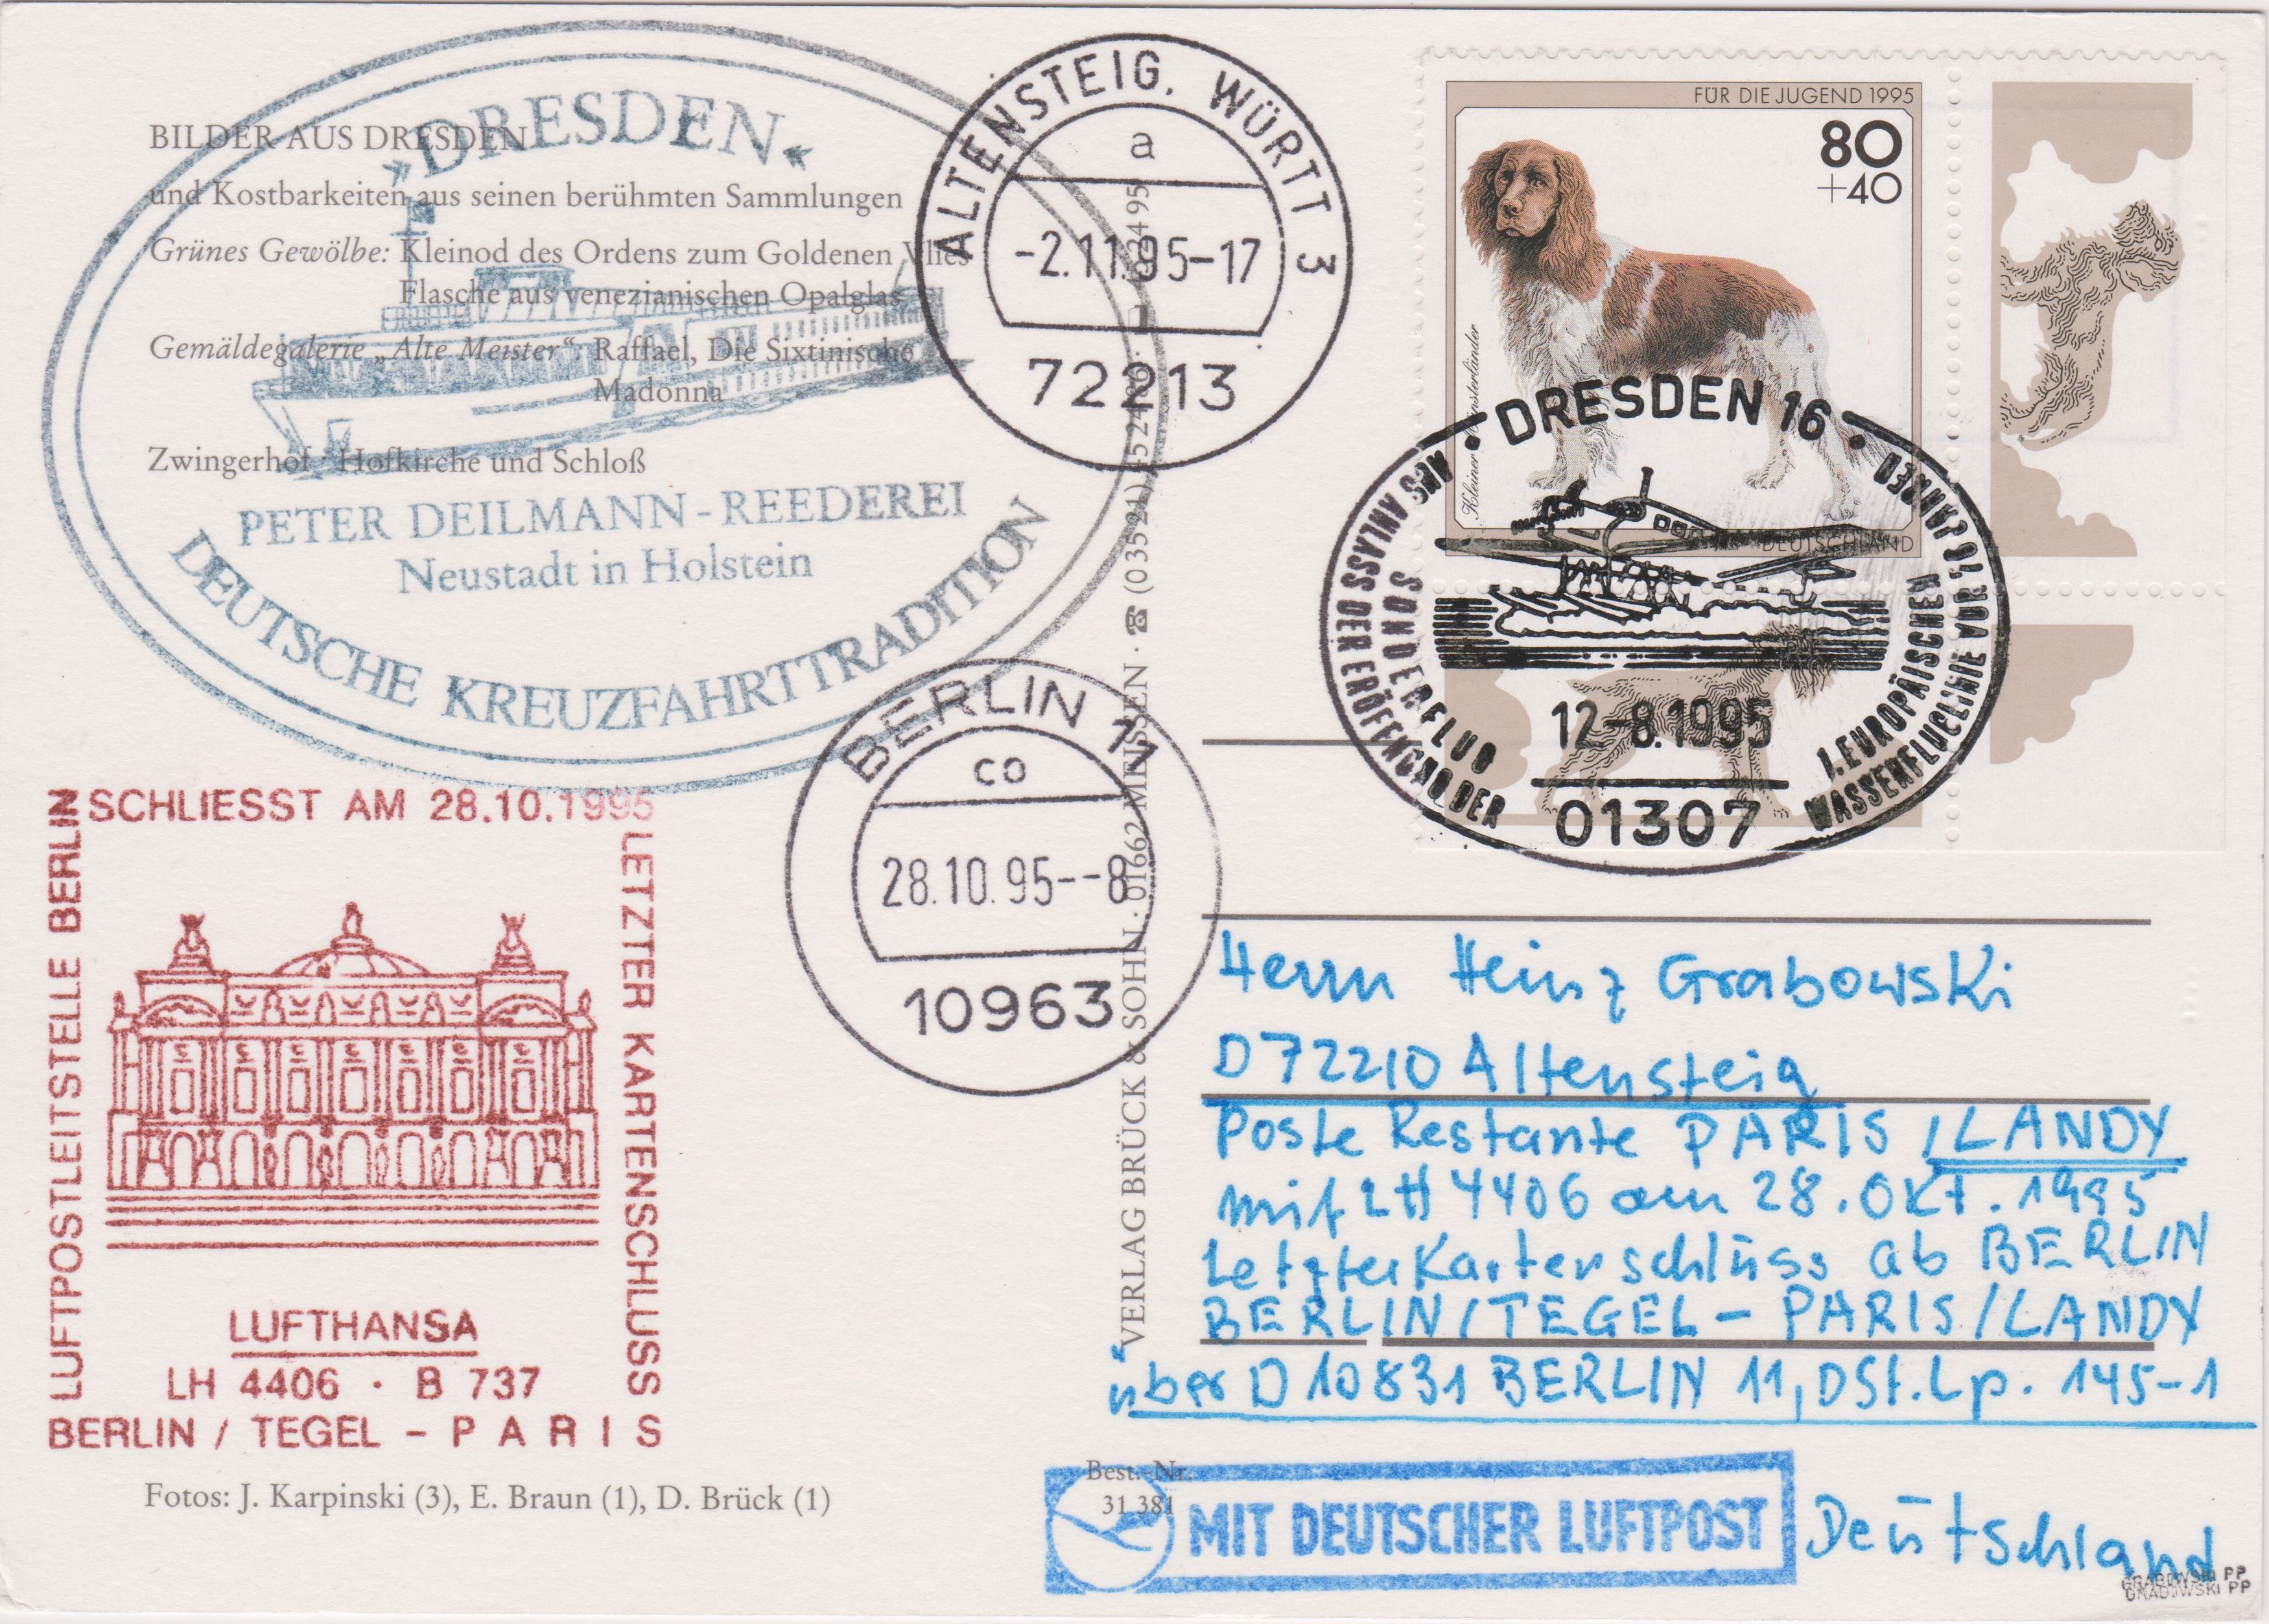 BILDER AUS DRESDEN
und Kostbarkeiten aus seinen berühmten Sammlungen
Grünes Gewölbe: Kleinod des Ordens zum Goldenen Vlies
Flasche aus venezianischen Opalglas
Gemäldegalerie „Alte Meister“: Raffael, Die Sixtinische
Madonna
Zwingerhof · Hofkirche und Schloß
DRESDEN
PETER DEILMANN-REEDEREI
Neustadt in Holstein
DEUTSCHE KREUZFAHRTTRADITION
ALTENSTEIG, WÜRTT 3
a
-2.11.95-17
72213
FÜR DIE JUGEND 1995
80
+40
Kleiner Münsterländer
DEUTSCHLAND
DRESDEN 16
SONDERFLUG
AUS ANLASS DER ERÖFFNUNG DER
1. EUROPÄISCHEN
WASSERFLUGLINIE VOR 70 JAHREN
12-8.1995
01307
BERLIN 77
co
28.10.95--8
10963
VERLAG BRÜCK & SOHN · 01662 MEISSEN · ☎ (03521)
LUFTPOSTLEITSTELLE BERLIN
SCHLIESST AM 28.10.1995
LETZTER KARTENSCHLUSS
LUFTHANSA
LH 4406 · B 737
BERLIN / TEGEL - PARIS
Fotos: J. Karpinski (3), E. Braun (1), D. Brück (1)
Herrn Heinz Grabowski
D 72210 Altensteig
Poste Restante PARIS /LANDY
mit LH 4406 am 28. OKt. 1995
Letzter Kartenschluss ab BERLIN
BERLIN/TEGEL - PARIS/LANDY
über D 10831 BERLIN 11, DSt. Lp. 145-1
Best.-Nr.
31 381
MIT DEUTSCHER LUFTPOST
Deutschland
GRABOWSKI PP
GRABOWSKI PP